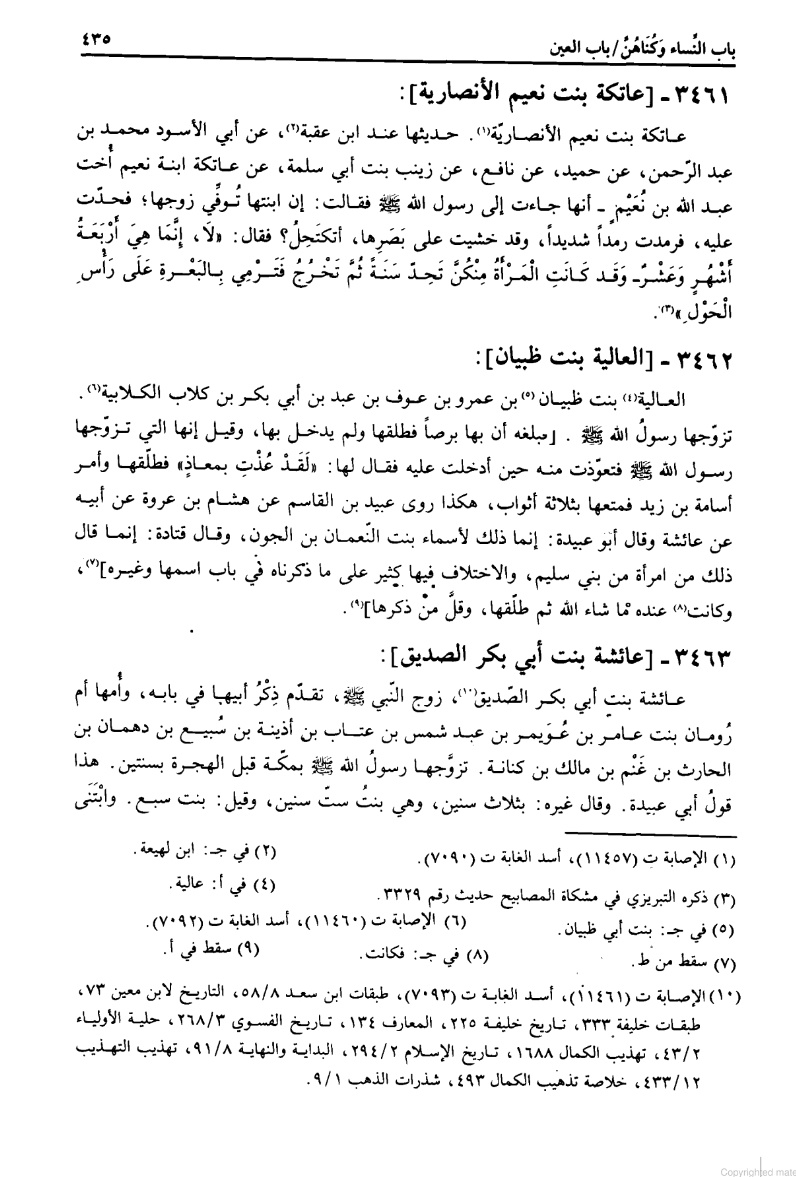 باب النِّساء وَكُنَاهُنَّ/ باب العين
٤٣٥
٣٤٦١ ـ [عاتكة بنت نعيم الأنصارية]:
عاتكة بنت نعيم الأنصاريّة(١). حديثها عند ابن عقبة(٢)، عن أبي الأسود محمد بن
عبد الرّحمن، عن حميد، عن نافع، عن زينب بنت أبي سلمة، عن عاتكة ابنة نعيم أُخت
عبد الله بن نُعَيْمٍ ـ أنها جاءت إلى رسول الله ﷺ فقالت: إن ابنتها تُوفِّي زوجها؛ فحدّت
عليه، فرمدت رمداً شديداً، وقد خشيت على بَصَرِها، أتكتَحِلُ؟ فقال: «لَا، إِنَّمَا هِيَ أَرْبَعَةُ
أَشْهُرٍ وَعَشْرٌـ وَقَد كَانَتِ الْمَرْأَةُ مِنْكُنَّ تَحِدّ سَنَةً ثُمَّ تَخْرُجُ فَتَرْمِي بِالبَعْرةِ عَلَى رَأْسِ
الْحَوْلِ»(٣).
٣٤٦٢ ـ [العالية بنت ظبيان]:
العالية(٤) بنت ظبيان(٥) بن عمرو بن عوف بن عبد بن أبي بكر بن كلاب الكلابية(٦).
تزوّجها رسولُ الله ﷺ. [مبلغه أن بها برصاً فطلقها ولم يدخل بها، وقيل إنها التي تزوّجها
رسول الله ﷺ فتعوّذت منه حين أدخلت عليه فقال لها: «لَقَدْ عُذْتِ بمعاذٍ» فطلّقها وأمر
أسامة بن زيد فمتعها بثلاثة أثواب، هكذا روى عبيد بن القاسم عن هشام بن عروة عن أبيه
عن عائشة وقال أبو عبيدة: إنما ذلك لأسماء بنت النّعمان بن الجون، وقال قتادة: إنما قال
ذلك من امرأة من بني سليم، والاختلاف فيها كثير على ما ذكرناه في باب اسمها وغيره](٧)،
وكانت(٨) عنده مّا شاء الله ثم طلّقها، وقلَّ مَنْ ذكرها](٩).
٣٤٦٣ ـ [عائشة بنت أبي بكر الصديق]:
عائشة بنت أبي بكر الصّديق(١٠)، زوج النّبي ﷺ، تقدّم ذِكْرُ أبيها في بابه، وأُمها أم
رُومان بنت عامر بن عُوَيمر بن عبد شمس بن عتاب بن أذينة بن سُبيع بن دهمان بن
الحارث بن غَنْم بن مالك بن كنانة. تزوَّجها رسولُ الله ﷺ بمكّة قبل الهجرة بسنتين. هذا
قولُ أبي عبيدة. وقال غيره: بثلاث سنين، وهي بنتُ ستّ سنين، وقيل: بنت سبع. وابْتَنَى
(١) الإصابة ت (١١٤٥٧)، أسد الغابة ت (٧٠٩٠).
(٢) في جـ: ابن لهيعة.
(٣) ذكره التبريزي في مشكاة المصابيح حديث رقم ٣٣٢٩.
(٤) في أ: عالية.
(٥) في جـ: بنت أبي ظبيان.
(٦) الإصابة ت (١١٤٦٠)، أسد الغابة ت (٧٠٩٢).
(٧) سقط من ط.
(٨) في جـ: فكانت.
(٩) سقط في أ.
(١٠) الإصابة ت (١١٤٦١)، أسد الغابة ت (٧٠٩٣)، طبقات ابن سعد ٥٨/٨، التاريخ لابن معين ٧٣،
طبقات خليفة ٣٣٣، تاريخ خليفة ٢٢٥، المعارف ١٣٤، تاريخ الفسوي ٢٦٨/٣، حلية الأولياء
٤٣/٢، تهذيب الكمال ١٦٨٨، تاريخ الإسلام ٢٩٤/٢، البداية والنهاية ٩١/٨، تهذيب التهذيب
٤٣٣/١٢، خلاصة تذهيب الكمال ٤٩٣، شذرات الذهب ٩/١.
Copyrighted mate